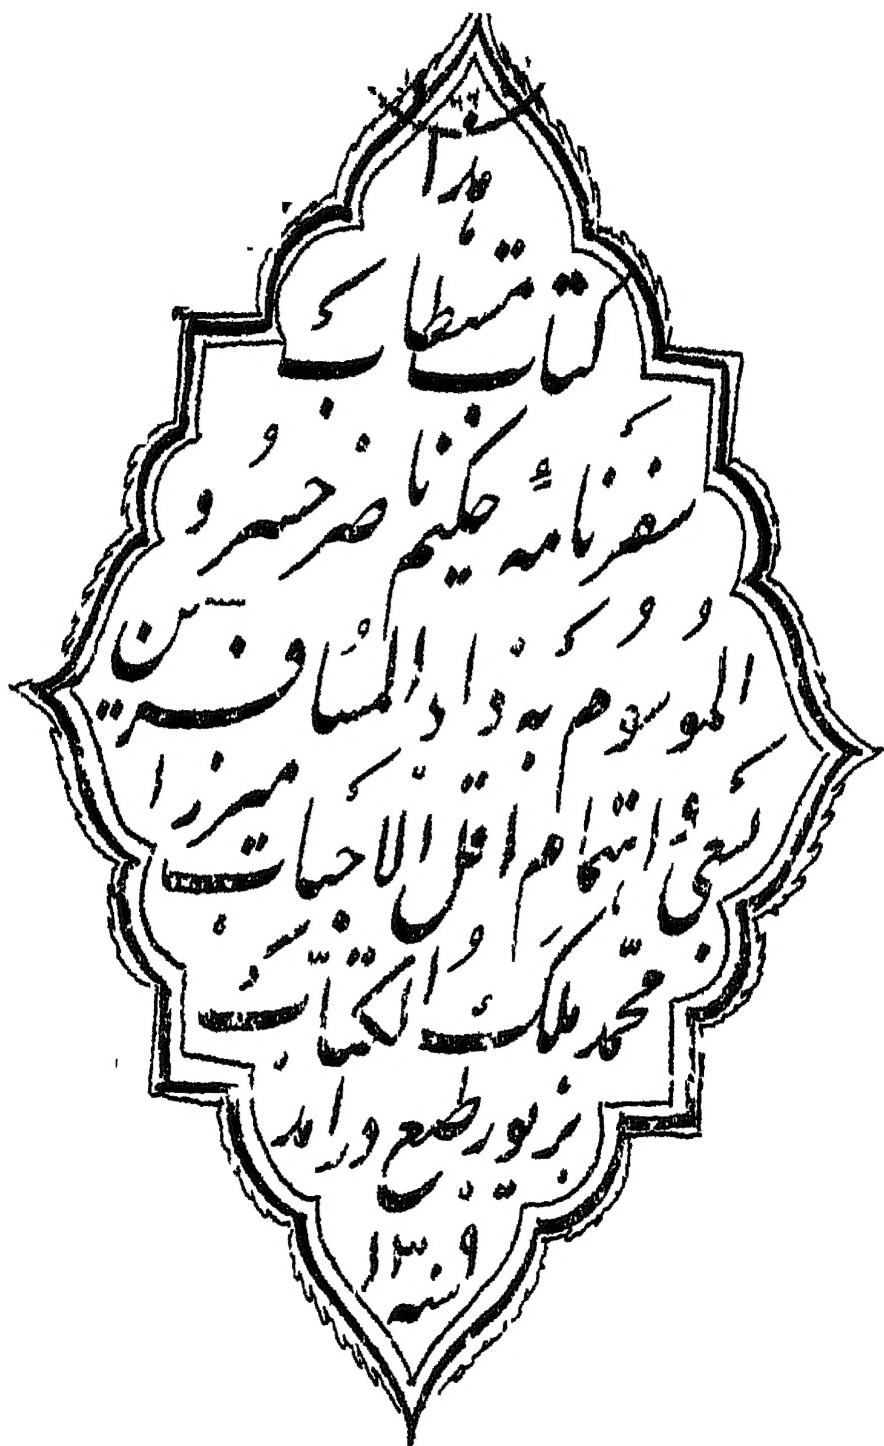 هذا
کتاب مستطاب
سفرنامهٔ حکیم ناصر خسرو
الموسوم به زاد المسافرین
بسعی اهتمام اقل الاحباب میرزا
محمّد ملک الکتّاب
بزیور طبع درامد
سنه ۱۳۰۹